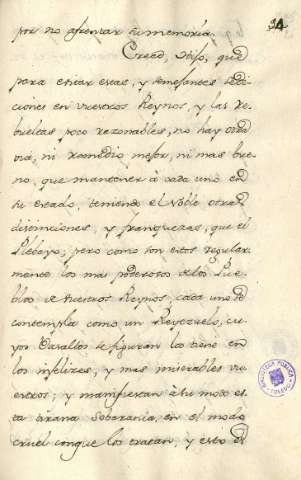 34
por no afrentar su memoria.
Creed, Hijo, que
para evitar estas, y semejantes sedi-
ciones en vuestros Reynos, y las re-
bueltas poco razonables, no hay otra
via, ni remedio mejor, ni mas bue-
no, que mantener à cada uno en
su estado, teniendo el Noble otras
distinciones, y franquezas, que el
Plebeyo, pero como son estos regular-
mente los mas poderosos de los Pue-
blos de vuestros Reynos, cada uno se
contempla como un Reyezuelo, cu-
yos Vasallos se figuran los tiene en
los infelizes, y mas miserables vu-
estros; y manifiestan à su modo es-
ta vana Soberania, en el modo
cruel con que los tratan, y esto es
BIBLIOTECA PUBLICA
TOLEDO